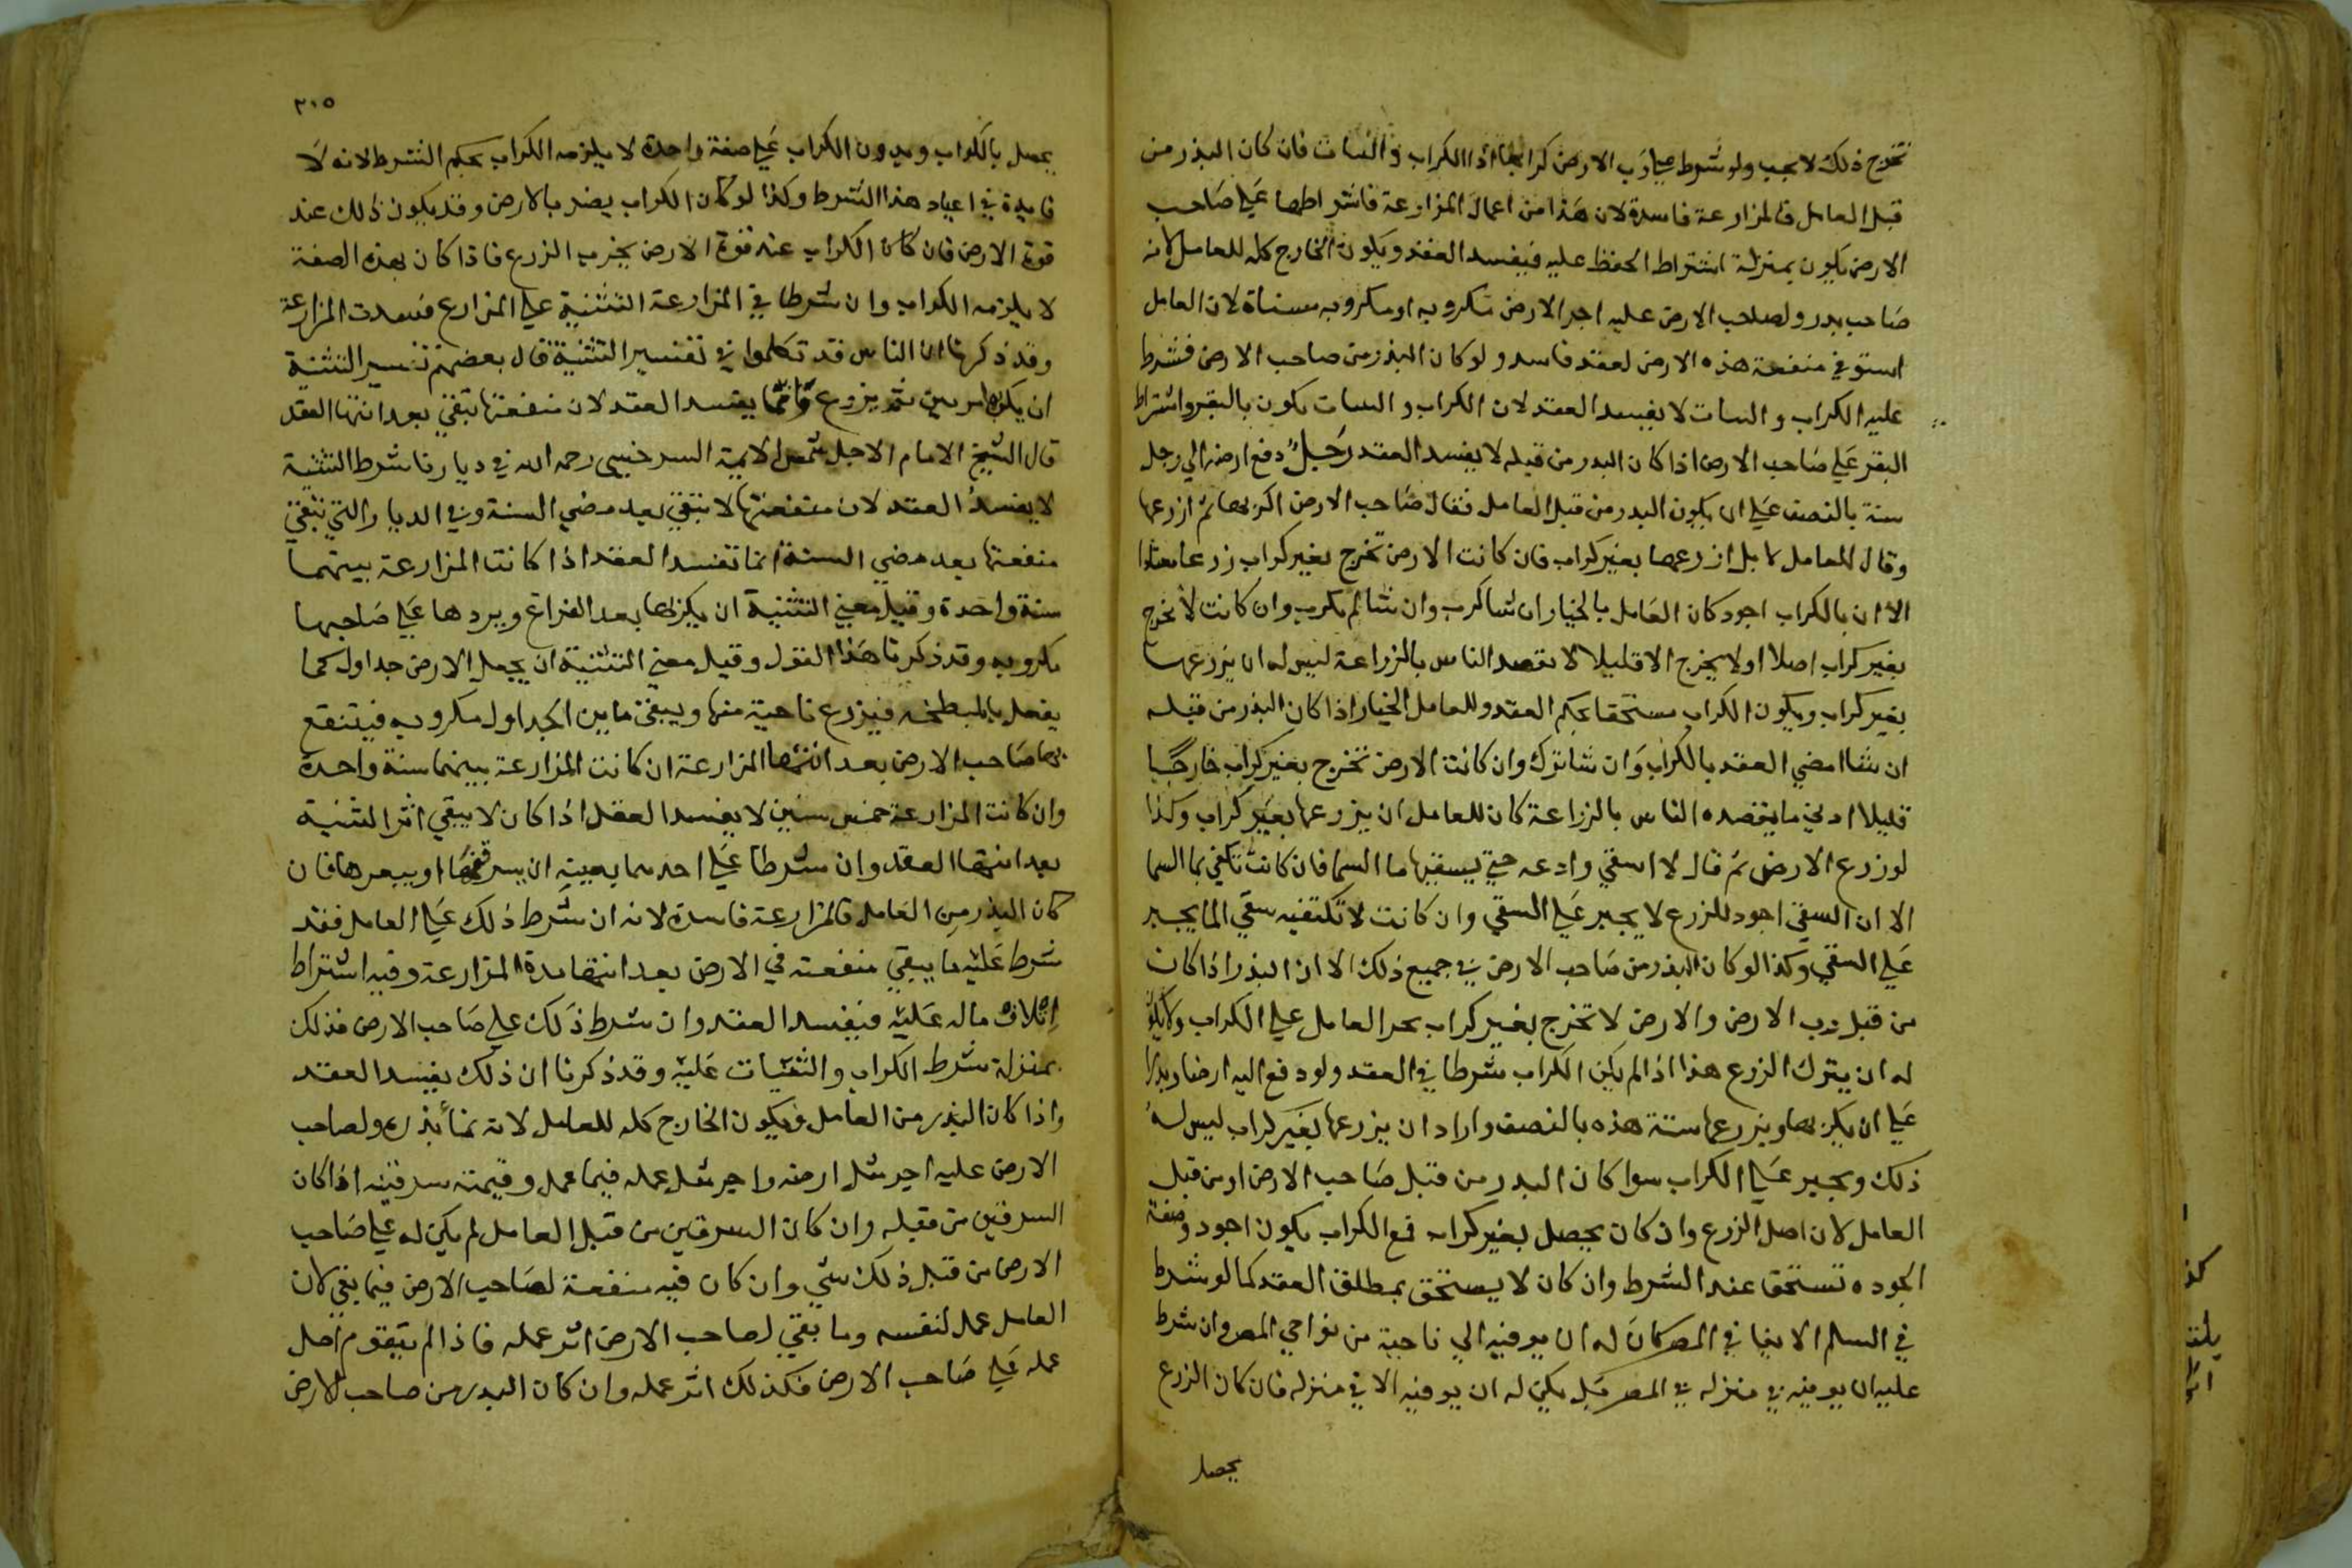 تخرج ذلك لا يجب ولو شرط علي رب الارض كرابها اذا الكراب والثنيات فان كان البذر من
قبل العامل فالمزارعة فاسدة لان هذا من اعمال المزارعة فاشتراطها علي صاحب
الارض يكون بمنزلة اشتراط الحفظ عليه فيفسد العقد ويكون الخارج كله للعامل لانه
صاحب بدر ولصاحب الارض عليه اجر الارض مكروبه او مكروبه مسناة لان العامل
استوفي منفعة هذه الارض لعقد فاسد ولو كان البذر من صاحب الارض فشرط
عليه الكراب والسات لا يفسد العقد لان الكراب والسات يكون بالبقر واشتراط
البقر علي صاحب الارض اذا كان البدر من قبله لا يفسد العقد رجل دفع ارضه الي رجل
سنة بالنصف علي ان يكون البدر من قبل العامل فقال صاحب الارض اكربها ثم ازرعها
وقال للعامل لا بل ازرعها بغير كراب فان كانت الارض تخرج بغير كراب زرعا معتادا
الا ان بالكراب اجود كان العامل بالخيار ان شا كرب وان شا لم يكرب وان كانت لا تخرج
بغير كراب اصلا اولا يخرج الا قليلا لا يقصد الناس بالزراعة ليس له ان يزرعها
بغير كراب ويكون الكراب مستحقا بحكم العقد وللعامل الخيار اذا كان البذر من قبله
ان شا امضي العقد بالكراب وان شا ترك وان كانت الارض تخرج بغير كراب خارجا
قليلا ادني ما يقصده الناس بالزراعة كان للعامل ان يزرعها بغير كراب وكذا
لو زرع الارض ثم قال لا اسقي وادعه حتي يسقيها ما السما فان كانت تكتفي بما السما
الا ان السقي اجود للزرع لا يجبر علي السقي وان كانت لا تكتفيه سقي الما يجبر
علي السقي وكذا لو كان البذر من صاحب الارض في جميع ذلك الا ان البذر اذا كان
من قبل رب الارض والارض لا تخرج بغير كراب يجبر العامل علي الكراب ولا يكون
له ان يترك الزرع هذا اذا لم يكن الكراب شرطا في العقد ولو دفع اليه ارضا وبدرا
علي ان يكربها ويزرعها سنة هذه بالنصف واراد ان يزرعها بغير كراب ليس له
ذلك ويجبر علي الكراب سوا كان البدر من قبل صاحب الارض او من قبل
العامل لان اصل الزرع وان كان يحصل بغير كراب فمع الكراب يكون اجود وصفة
الجوده تستحق عند الشرط وان كان لا يستحق بمطلق العقد كما لو شرط
في السلم الايفا في المصر كان له ان يوفيه الي ناحية من نواحي المصر وان شرط
عليه ان يوفيه في منزله في المصر لم يكن له ان يوفيه الا في منزله فان كان الزرع
يحصل
٢٠٥
يحصل بالكراب وبدون الكراب علي صفة واحدة لا يلزمه الكراب بحكم الشرط لانه لا
فايدة في اعتبار هذا الشرط وكذا لو كان الكراب يضر بالارض وقد يكون ذلك عند
قوة الارض فان كان الكراب عند قوة الارض يخرب الزرع فاذا كان بهذه الصفة
لا يلزمه الكراب وان شرطا في المزارعة التثنية علي المزارع فسدت المزارعة
وقد ذكرنا ان الناس قد تكلموا في تفسير التثنية قال بعضهم تفسير التثنية
ان يكربها مرتين ثم يزرع وانما يفسد العقد لان منفعتها تبقي بعد انتها العقد
قال الشيخ الامام الاجل شمس الايمة السرخسي رحمه الله في ديارنا شرط التثنية
لا يفسد العقد لان منفعتها لا تبقي بعد مضي السنة وفي الديار التي تبقي
منفعتها بعد مضي السنة انما تفسد العقد اذا كانت المزارعة بينهما
سنة واحدة وقيل معني التثنية ان يكربها بعد الفراغ ويردها علي صاحبها
مكروبه وقد ذكرنا هذا القول وقيل معني التثنية ان يجعل الارض جداول كما
يفعل بالمبطخه فيزرع ناحية منها ويبقي ما بين الجداول مكروبه فينتفع
بها صاحب الارض بعد انتها المزارعة ان كانت المزارعة بينهما سنة واحدة
وان كانت المزارعة خمس سنين لا يفسد العقد اذا كان لا يبقي اثر التثنية
بعد انتها العقد وان شرطا علي احدهما بعينه ان يسرقنها او يبعرها فان
كان البذر من العامل فالمزارعة فاسدة لانه ان شرط ذلك علي العامل فقد
شرط عليه ما يبقي منفعته في الارض بعد انتها مدة المزارعة وفيه اشتراط
اتلاف ماله عليه فيفسد العقد وان شرط ذلك علي صاحب الارض فذلك
بمنزلة شرط الكراب والثنيات عليه وقد ذكرنا ان ذلك يفسد العقد
واذا كان البذر من العامل ويكون الخارج كله للعامل لانه نما بذره ولصاحب
الارض عليه اجر مثل ارضه واجر مثل عمله فيما عمل وقيمته سرقينه اذا كان
السرقين من قبله وان كان السرقين من قبل العامل لم يكن له علي صاحب
الارض من قبل ذلك شي وان كان فيه منفعة لصاحب الارض فيما بقي لان
العامل عمل لنفسه وما بقي لصاحب الارض اثر عمله فاذا لم يتقوم اصل
عمله علي صاحب الارض فكذلك اثر عمله وان كان البدر من صاحب الارض